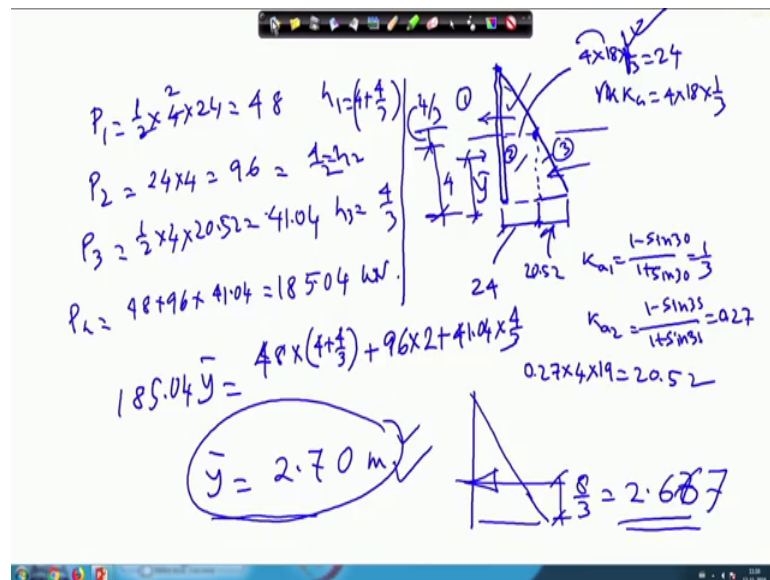 P₁ = 1/2 × 4 × 24 = 48   h₁ = (4 + 4/3)
2
P₂ = 24 × 4 = 96 = 4/2 = h₂
P₃ = 1/2 × 4 × 20.52 = 41.04   h₃ = 4/3
Pₐ = 48 + 96 + 41.04 = 185.04 kN.
185.04 ȳ = 48 × (4 + 4/3) + 96 × 2 + 41.04 × 4/3
ȳ = 2.70 m.
4 × 18 × 1/3 = 24
γH Kₐ = 4 × 18 × 1/3
4/3
①
②
③
4
ȳ
24
20.52
Kₐ₁ = (1 - sin30)/(1 + sin30) = 1/3
Kₐ₂ = (1 - sin35)/(1 + sin35) = 0.27
0.27 × 4 × 19 = 20.52
8/3 = 2.667